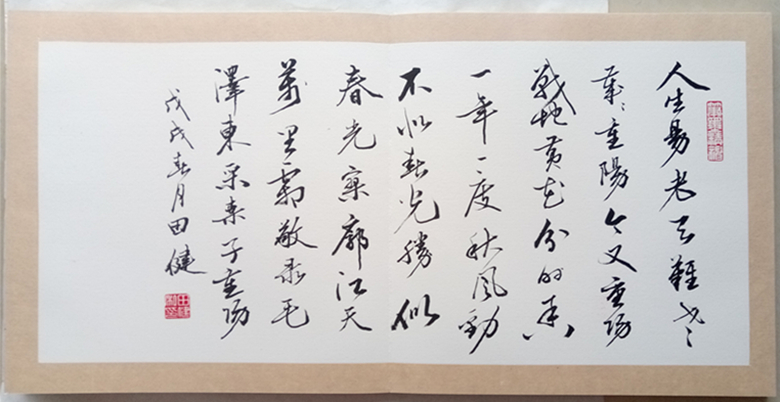 人生易老天難老
歲〻重陽今又重陽
戰地黃花分外香
一年一度秋風勁
不似春光勝似
春光寥廓江天
萬里霜敬录毛
澤東采桑子重陽
戊戌春月田健